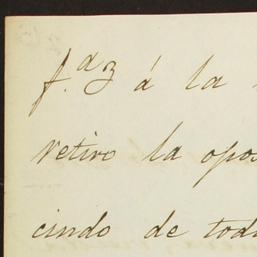 á la
retiro la opos
cindo de tod